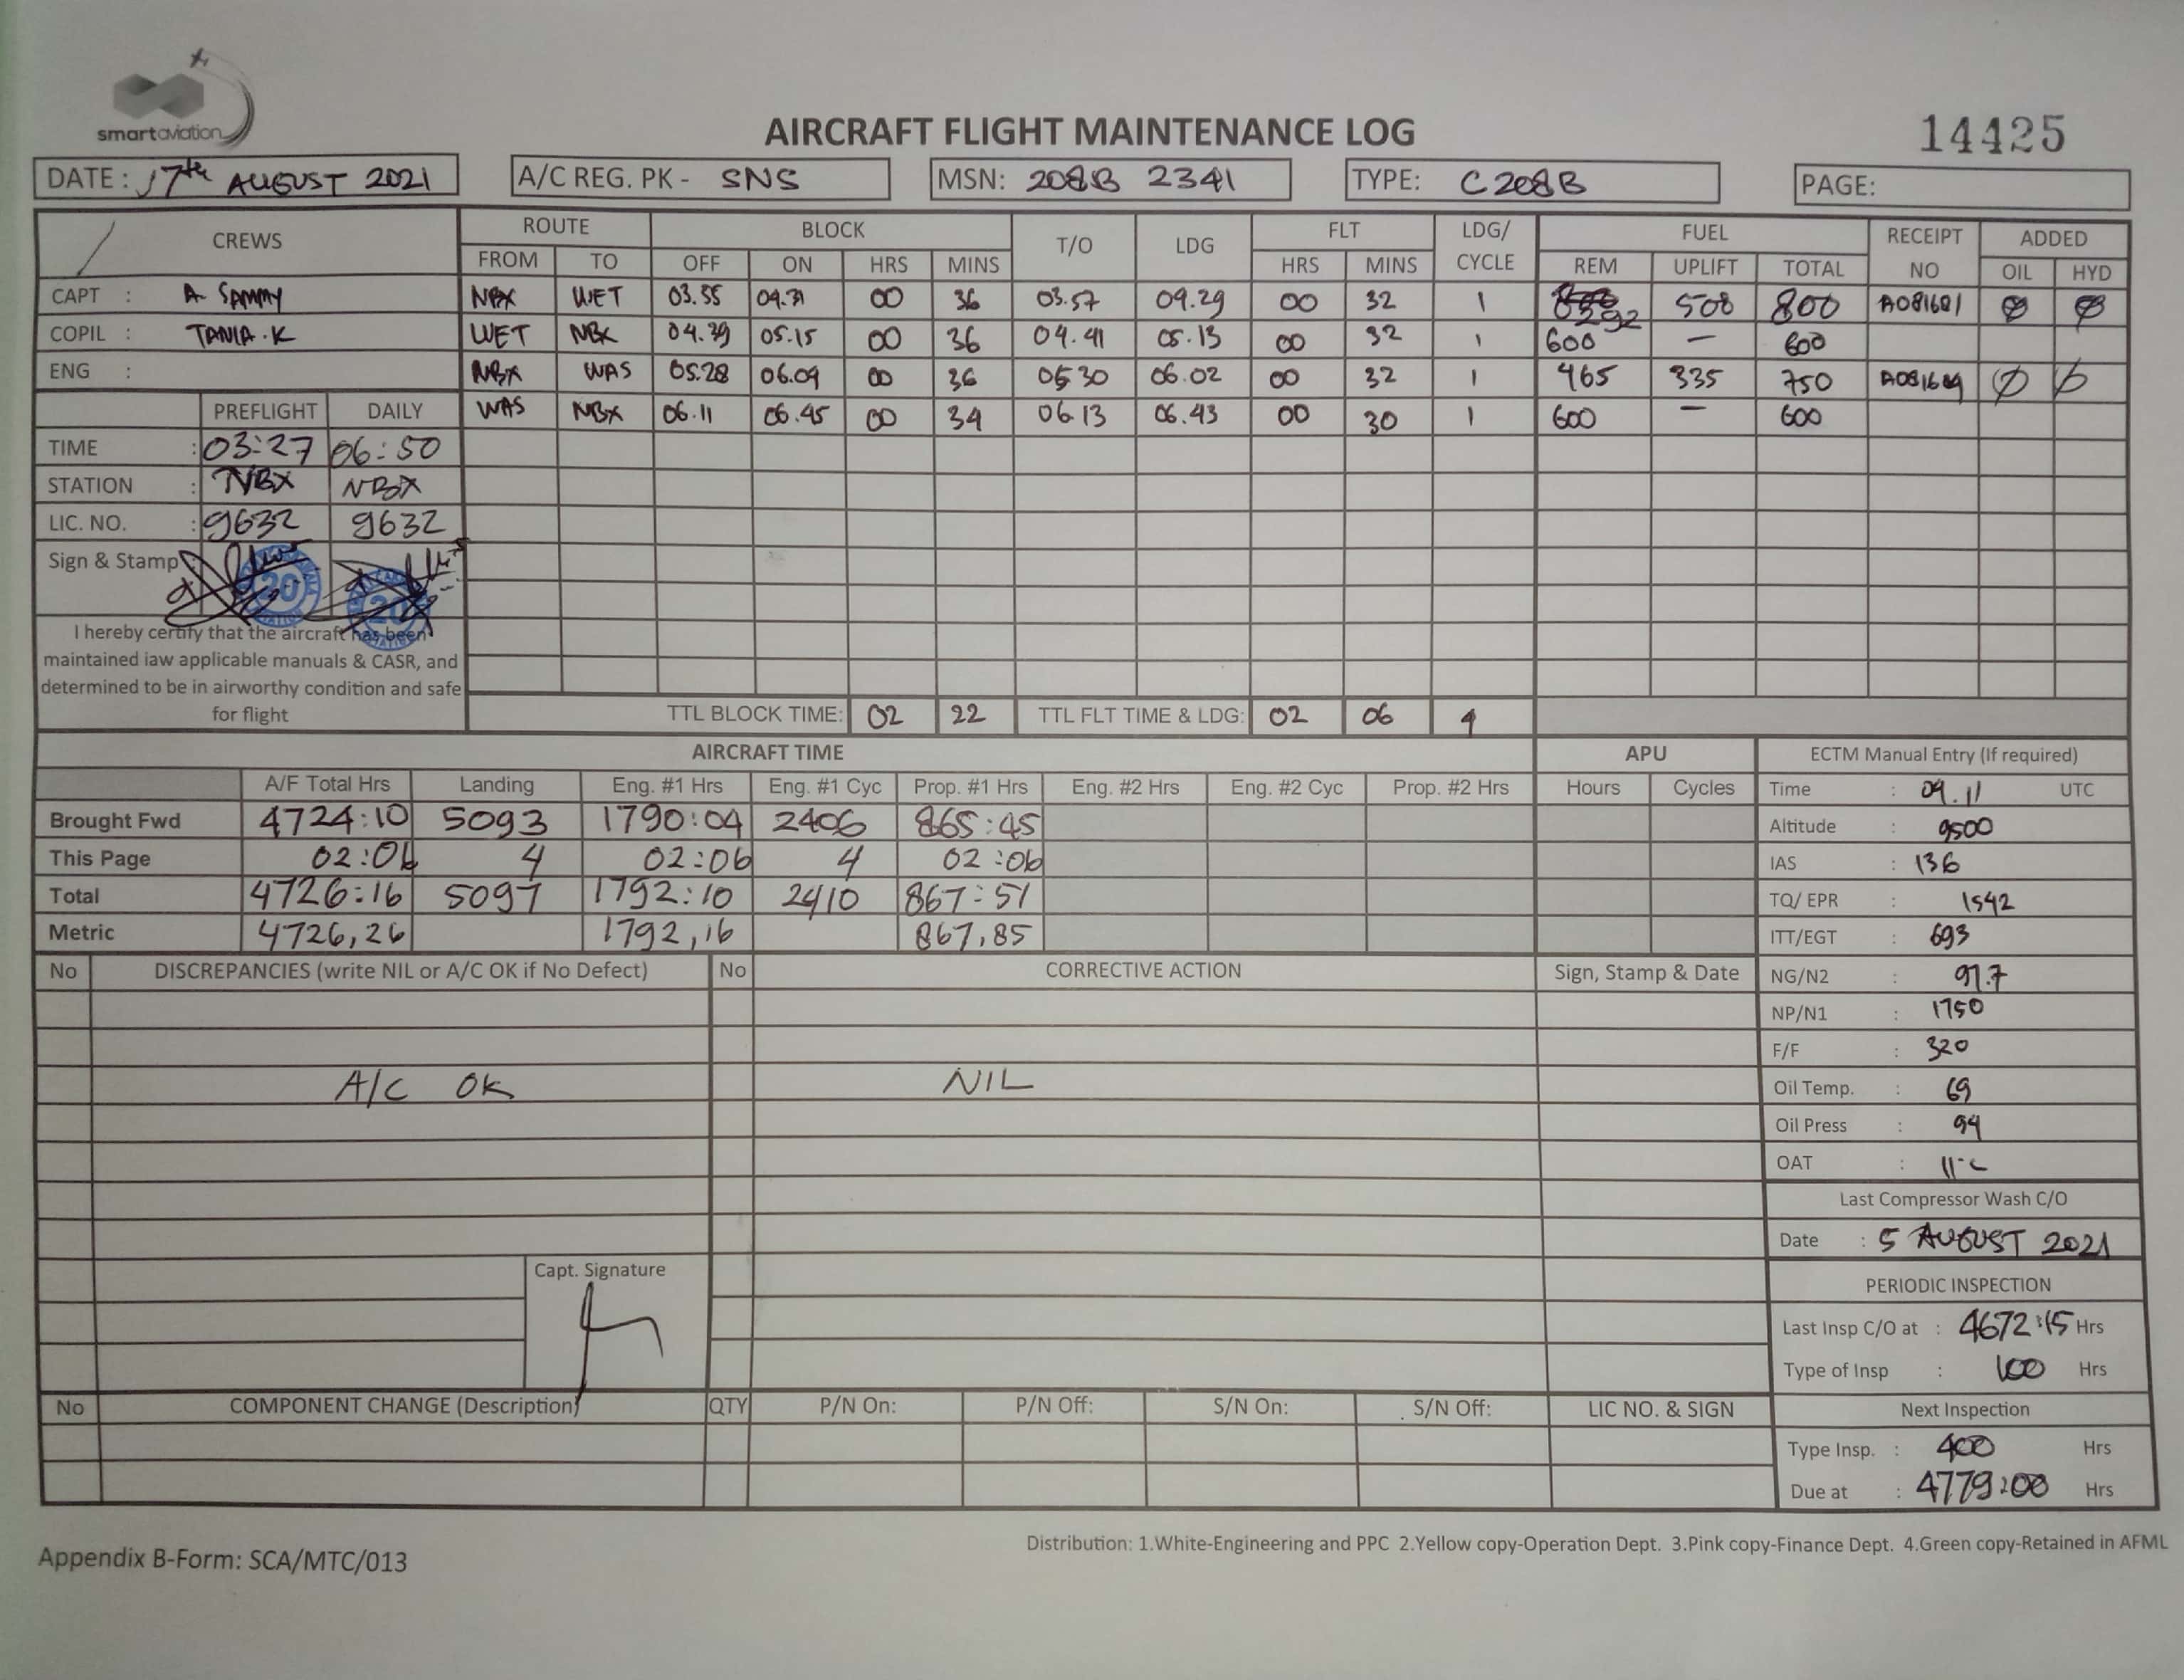 smartaviation
AIRCRAFT FLIGHT MAINTENANCE LOG
14425
DATE: 17th AUGUST 2021 A/C REG. PK - SNS MSN: 208B 2341 TYPE: C208B PAGE:
CREWS ROUTE BLOCK T/O LDG FLT LDG/ CYCLE FUEL RECEIPT NO ADDED
FROM TO OFF ON HRS MINS HRS MINS REM UPLIFT TOTAL OIL HYD
CAPT : A. SAMMY NBX WET 03.55 04.31 00 36 03.57 04.29 00 32 1 292 508 800 A081681 Ø Ø
COPIL : TANIA.K WET NBX 04.39 05.15 00 36 04.41 05.13 00 32 1 600 — 600
ENG : NBX WAS 05.28 06.04 00 36 05 30 06.02 00 32 1 465 335 750 Ø Ø
PREFLIGHT DAILY WAS NBX 06.11 06.45 00 34 06.13 06.43 00 30 1 600 — 600
TIME : 03:27 06:50
STATION : NBX NBX
LIC. NO. : 9632 9632
Sign & Stamp : 20 20
I hereby certify that the aircraft has been
maintained iaw applicable manuals & CASR, and
determined to be in airworthy condition and safe
for flight
TTL BLOCK TIME: 02 22 TTL FLT TIME & LDG: 02 06 4
AIRCRAFT TIME APU ECTM Manual Entry (If required)
A/F Total Hrs Landing Eng. #1 Hrs Eng. #1 Cyc Prop. #1 Hrs Eng. #2 Hrs Eng. #2 Cyc Prop. #2 Hrs Hours Cycles Time : 04.11 UTC
Brought Fwd 4724:10 5093 1790:04 2406 865:45 Altitude : 9500
This Page 02:06 4 02:06 4 02:06 IAS : 136
Total 4726:16 5097 1792:10 2410 867:51 TQ/ EPR : 1542
Metric 4726,26 1792,16 867,85 ITT/EGT : 693
No DISCREPANCIES (write NIL or A/C OK if No Defect) No CORRECTIVE ACTION Sign, Stamp & Date NG/N2 : 97.7
NP/N1 : 1750
F/F : 320
A/C OK NIL Oil Temp. : 69
Oil Press : 94
OAT : 11°C
Last Compressor Wash C/O
Date : 5 AUGUST 2021
Capt. Signature
PERIODIC INSPECTION
Last Insp C/O at : 4672:15 Hrs
Type of Insp : 100 Hrs
No COMPONENT CHANGE (Description) QTY P/N On: P/N Off: S/N On: S/N Off: LIC NO. & SIGN Next Inspection
Type Insp. : 400 Hrs
Due at : 4779:00 Hrs
Distribution: 1.White-Engineering and PPC 2.Yellow copy-Operation Dept. 3.Pink copy-Finance Dept. 4.Green copy-Retained in AFML
Appendix B-Form: SCA/MTC/013